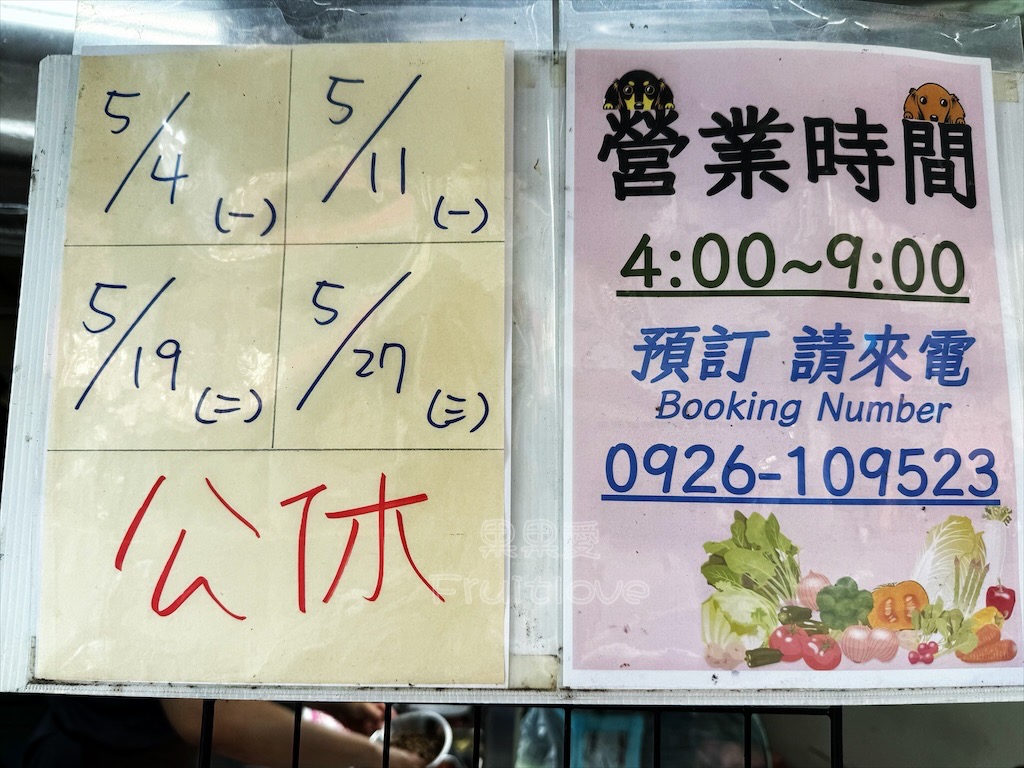 5/4 (一)
5/11 (一)
5/19 (二)
5/27 (三)
公休
營業時間
4:00~9:00
預訂 請來電
Booking Number
0926-109523
果果愛
Fruitlove